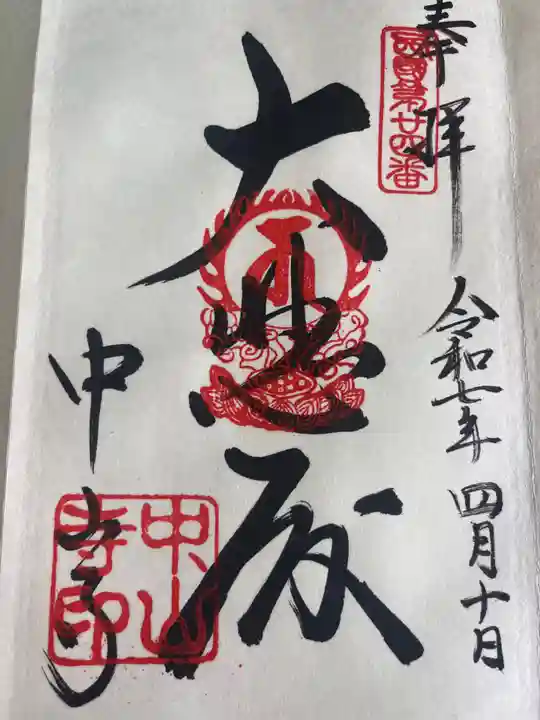 奉拝
西國第廿四番
令和七年四月十日
大悲殿
中山寺
中山
寺印